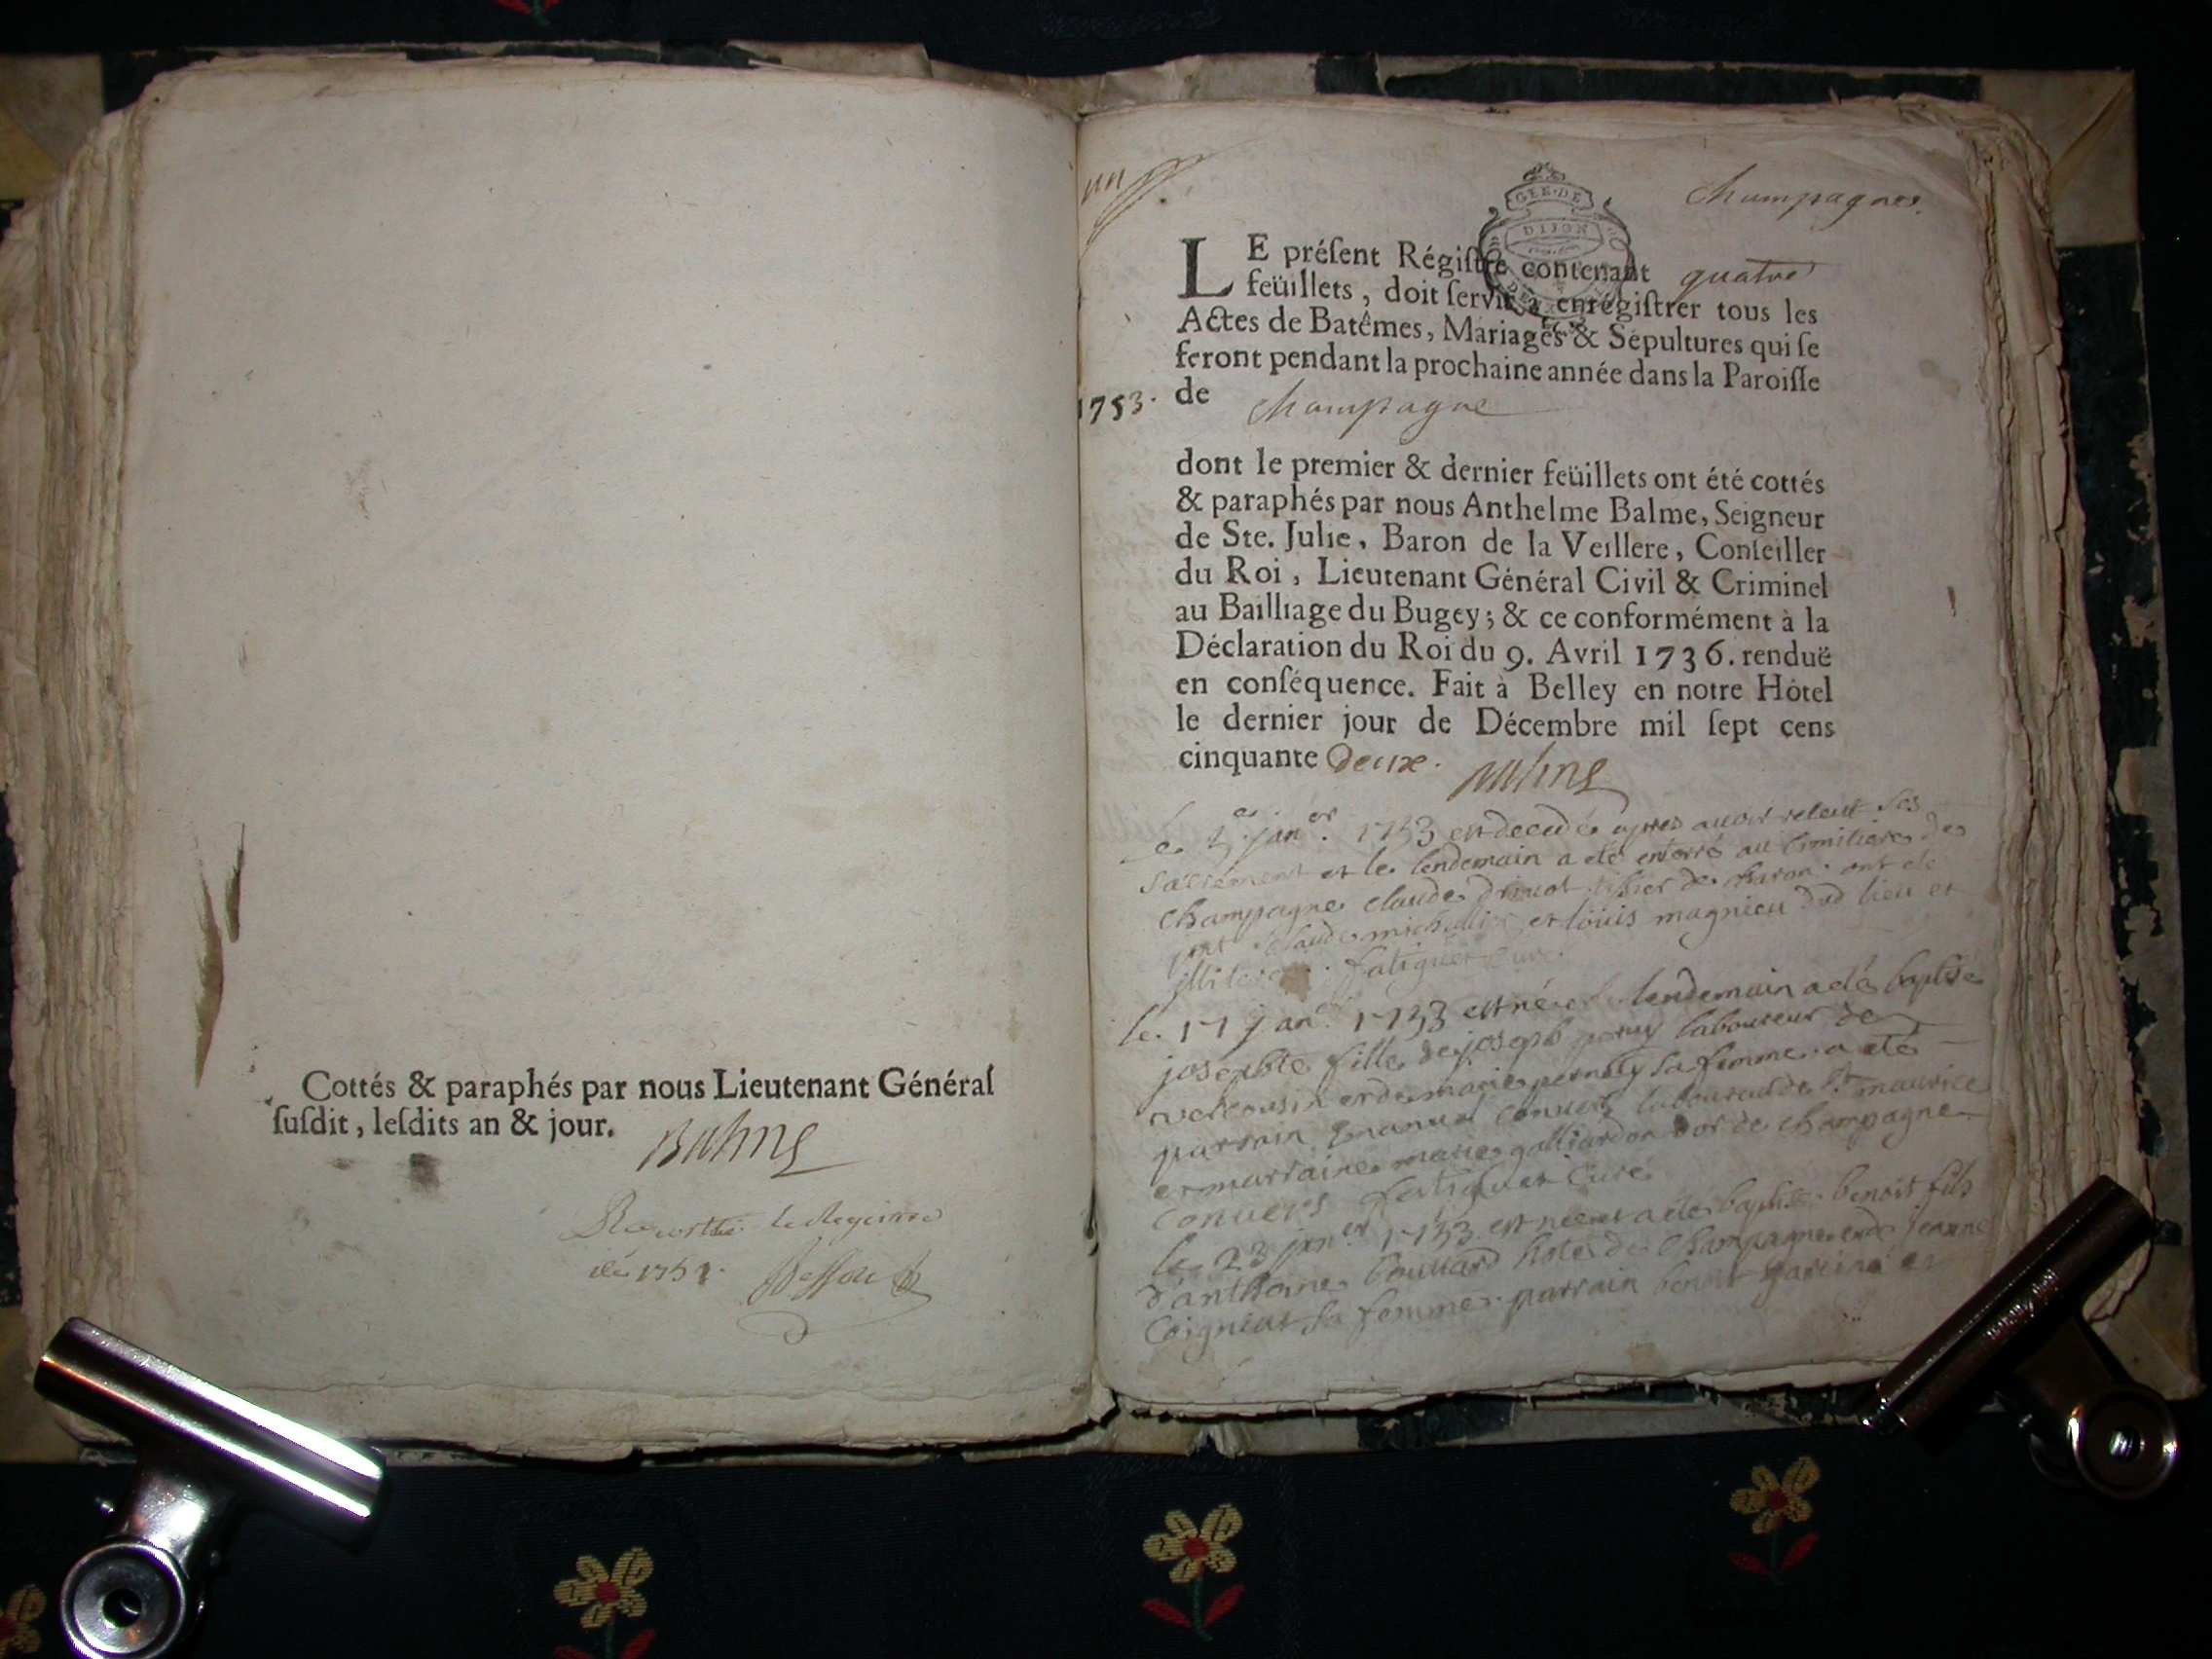 Cottés & paraphés par nous Lieutenant Général
ſuſdit, leſdits an & jour.
Balme
un
Champagne
GEN·DE
DIJON
LE préſent Régiſtre contenant quatre
feüillets, doit ſervir à enrégiſtrer tous les
Actes de Batêmes, Mariages & Sépultures qui ſe
feront pendant la prochaine année dans la Paroiſſe
1753. de Champagne
dont le premier & dernier feüillets ont été cottés
& paraphés par nous Anthelme Balme, Seigneur
de Ste. Julie, Baron de la Veillere, Conſeiller
du Roi, Lieutenant Général Civil & Criminel
au Bailliage du Bugey; & ce conformément à la
Déclaration du Roi du 9. Avril 1736. renduë
en conſéquence. Fait à Belley en notre Hôtel
le dernier jour de Décembre mil ſept cens
cinquante deux. Balme
le janer. 1753 est decedé apres avoir receut ses
sacrement et le lendemain a eté enterré au cimitiere de
champagne claude de charon ont eté
claude et loüis magnieu dud lieu et
illiteres fatiguet curé
le 17 jan. 1753 est née et le lendemain a eté baptisé
josephte fille de joseph laboureur de
vercousin et de marie sa femme a eté
parrain emanuel convers de St maurice
et marraine marie galliardon de champagne
convers fatiguet curé
le 23 janer 1753 est né et a eté baptisé benoit fils
d'anthoine bouvard hote de champagne et de jeanne
Coignieut sa femme parrain benoit et